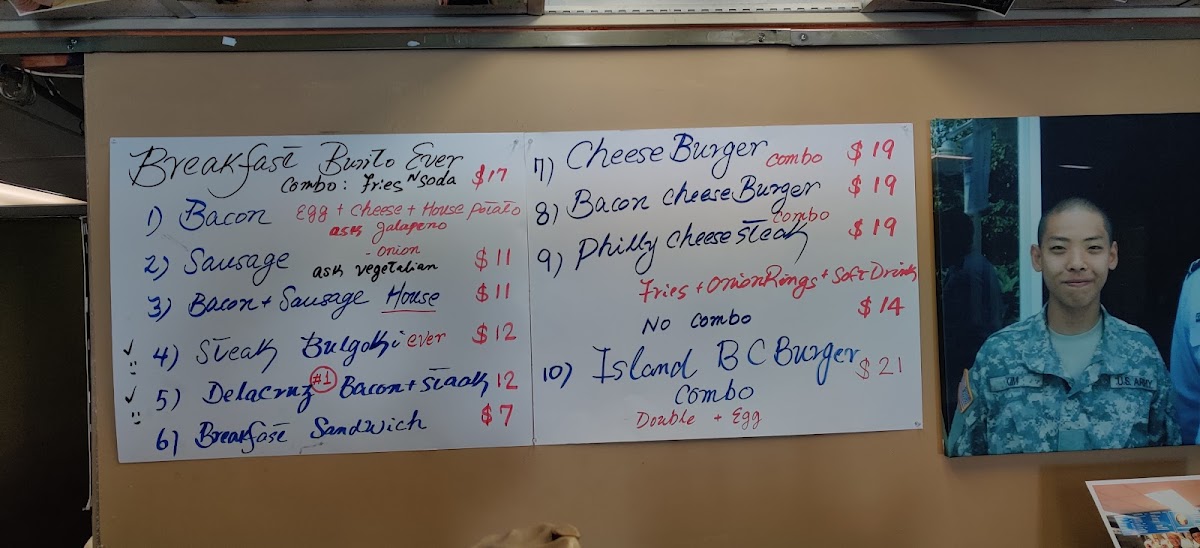 Breakfast Burito Ever
Combo: Fries N Soda $17
1) Bacon Egg + Cheese + House Potato
ask Jalapeno
- onion
2) Sausage ask vegetalian $11
3) Bacon + Sausage House $11
4) Steak Bulgokki ever $12
5) Delacruz #1 Bacon + steak 12
6) Breakfast Sandwich $7
7) Cheese Burger combo $19
8) Bacon cheese Burger $19
9) Philly cheese steak combo $19
Fries + Onion Rings + Soft Drink
No Combo $14
10) Island B C Burger $21
Combo
Double + Egg
KIM U.S. ARMY